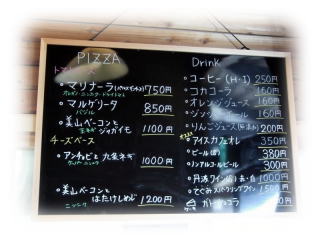 PIZZA
トマトソース
マリナーラ 750円
オレガノ・ニンニク・ドライトマト
マルゲリータ 850円
バジル
美山ベーコンと
ジャガイモ 1100円
チーズベース
アンチョビと九条ネギ 1000円
美山ベーコンと
はたけしめじ 1200円
ニンニク
Drink
コーヒー(H・I) 250円
コカコーラ 160円
オレンジジュース 160円
ジンジャエール 160円
りんごジュース 200円
アイスカフェオレ 350円
ビール 380円
ノンアルコールビール 300円
丹波ワイン 赤・白 1000円
スパークリングワイン 1500円
ガトーショコラ